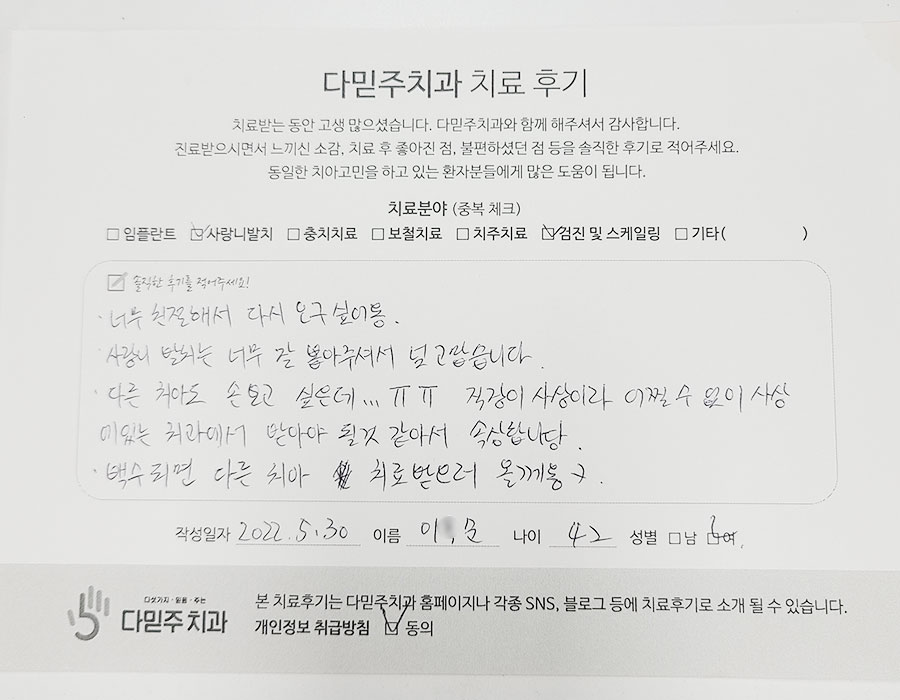 다믿주치과 치료 후기
치료받는 동안 고생 많으셨습니다. 다믿주치과와 함께 해주셔서 감사합니다.
진료받으시면서 느끼신 소감, 치료 후 좋아진 점, 불편하셨던 점 등을 솔직한 후기로 적어주세요.
동일한 치아고민을 하고 있는 환자분들에게 많은 도움이 됩니다.
치료분야 (중복 체크)
□ 임플란트 ☑ 사랑니발치 □ 충치치료 □ 보철치료 □ 치주치료 ☑ 검진 및 스케일링 □ 기타( )
솔직한 후기를 적어주세요!
· 너무 친절해서 다시 오구 싶어용.
· 사랑니 발치는 너무 잘 뽑아주셔서 넘 고맙습니다.
· 다른 치아도 손보고 싶은데... ㅠㅠ 직장이 사상이라 어쩔 수 없이 사상
에있는 치과에서 받아야 될것 같아서 속상합니당.
· 백수되면 다른 치아 치료받으러 올께용ㅋ.
작성일자 2022.5.30 이름 이 문 나이 42 성별 □남 ☑여
다섯가지·믿음·주는
다믿주치과
본 치료후기는 다믿주치과 홈페이지나 각종 SNS, 블로그 등에 치료후기로 소개 될 수 있습니다.
개인정보 취급방침 ☑ 동의